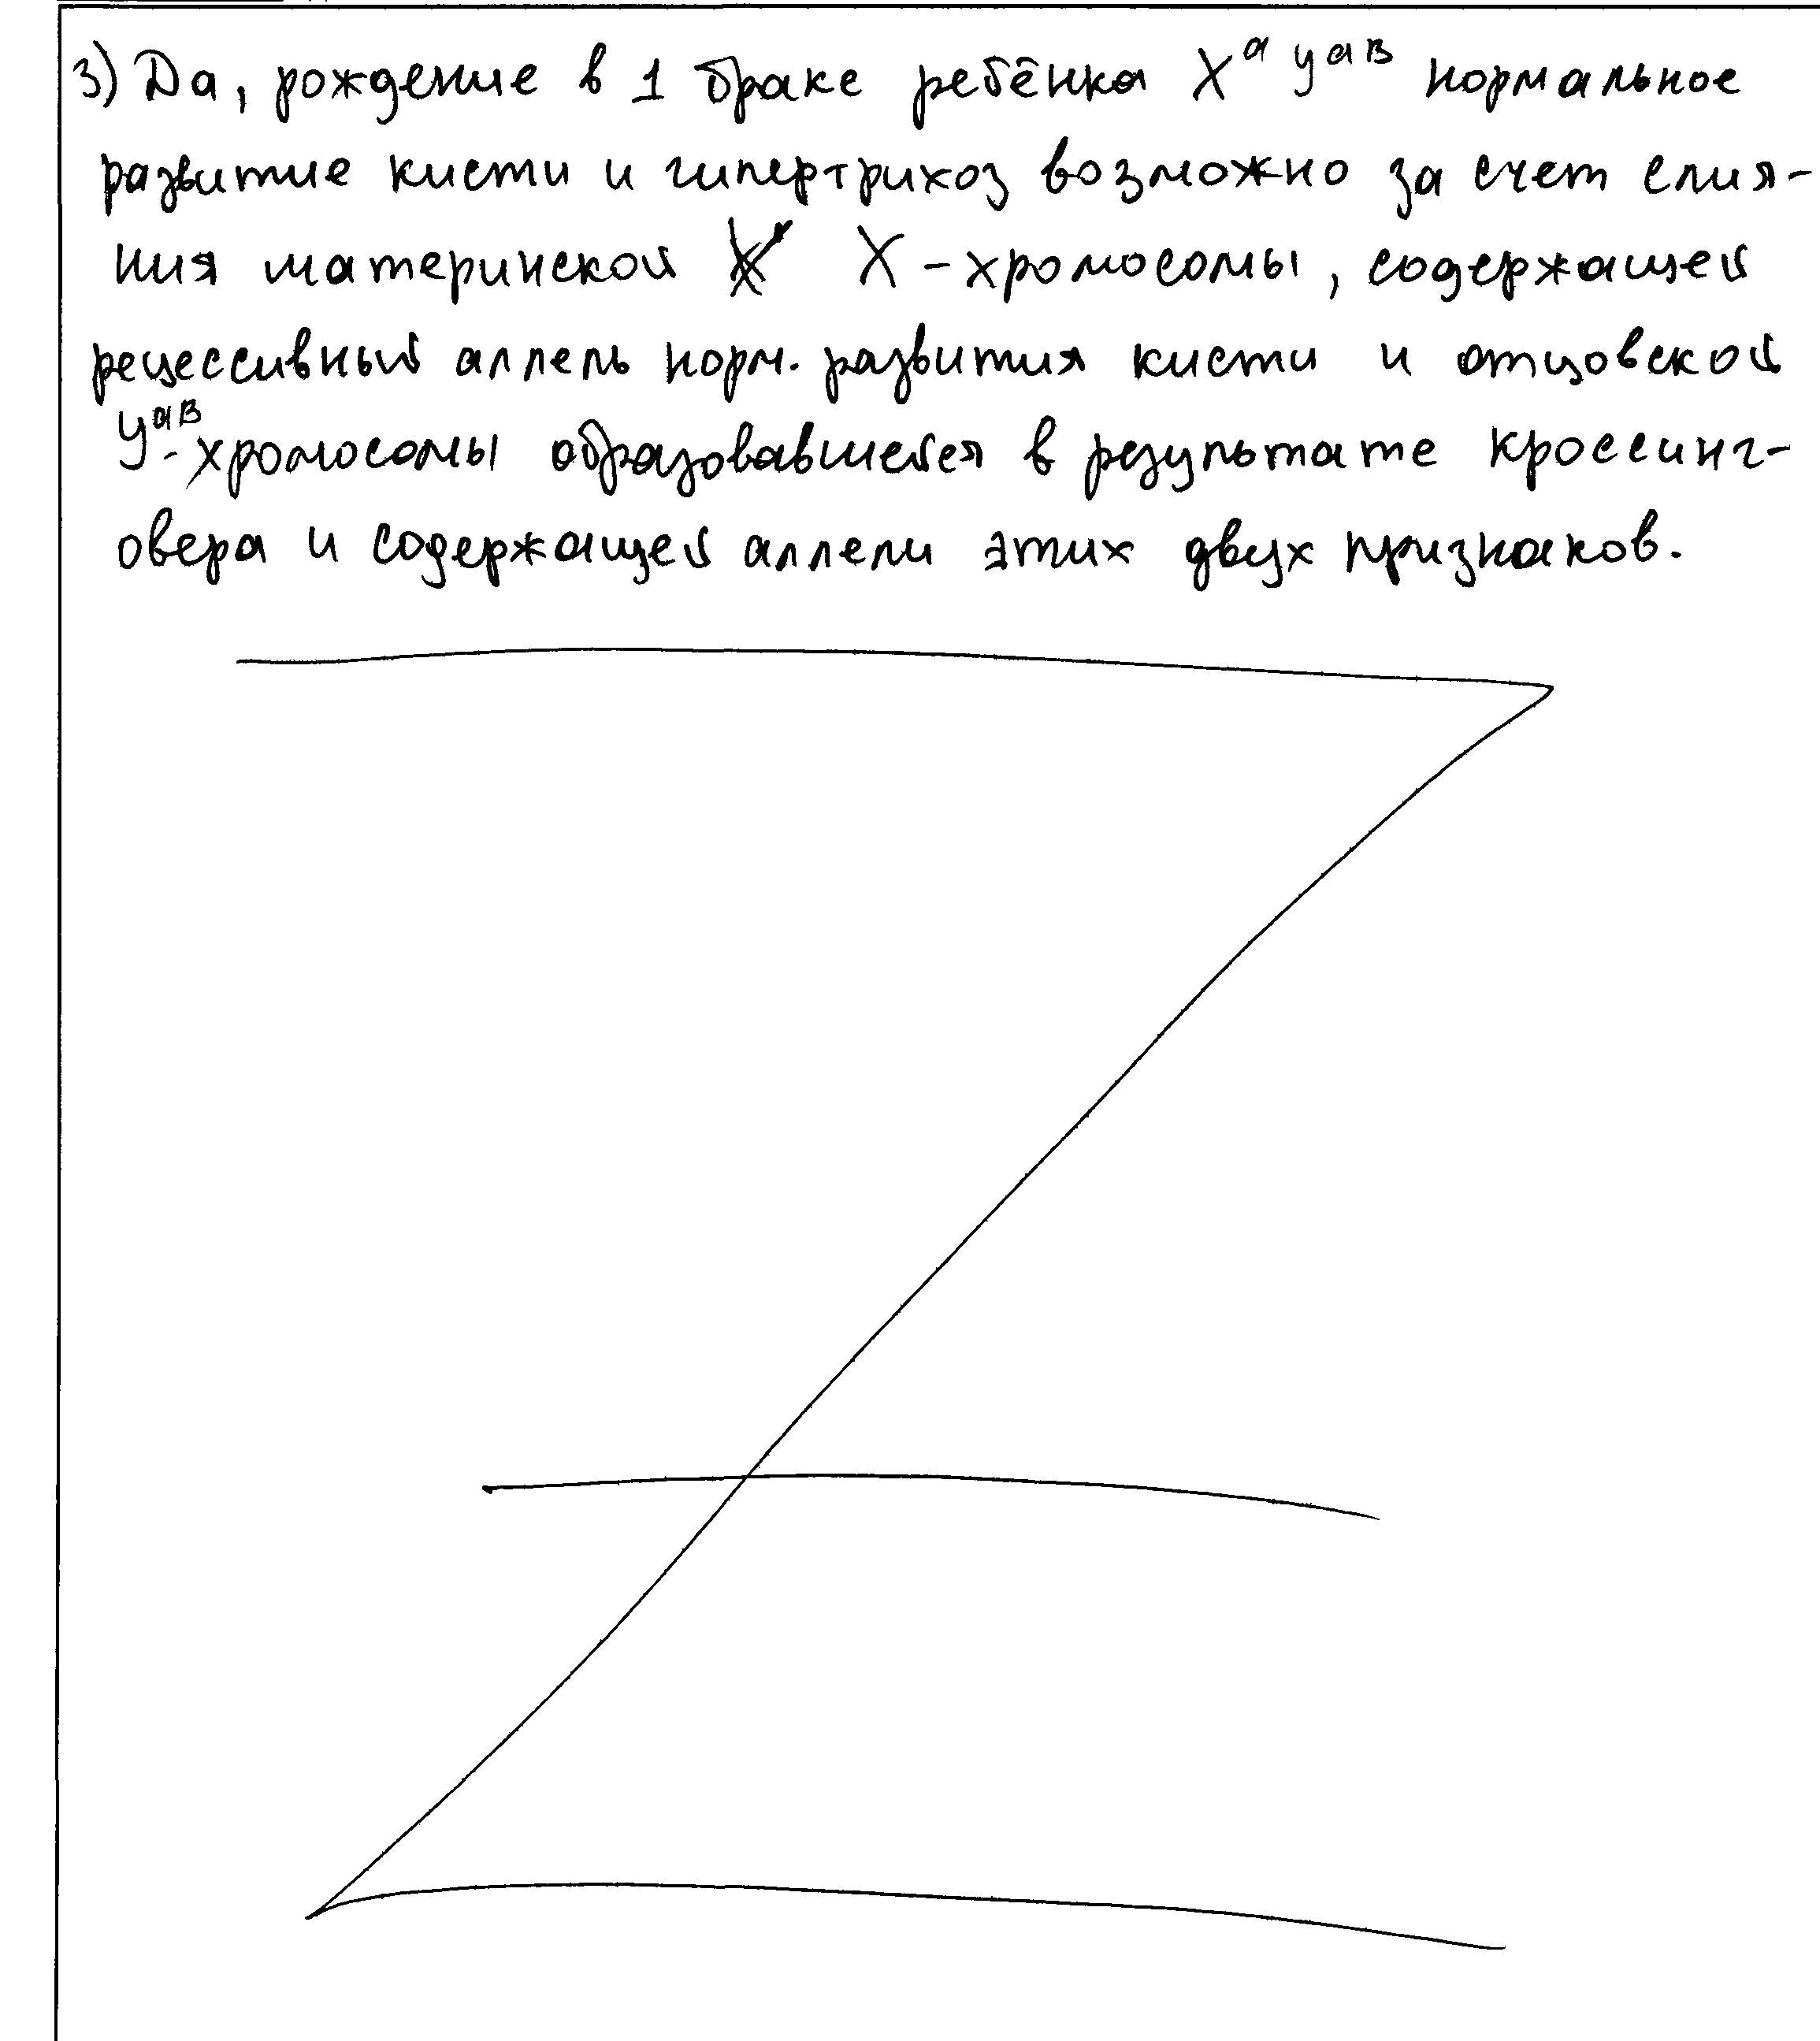 3) Да, рождение в 1 браке ребёнка X^a y^aB нормальное
развитие кисти и гипертрихоз возможно за счет слия-
ния материнской X-хромосомы, содержащей
рецессивный аллель норм. развития кисти и отцовской
y^aB-хромосомы образовавшейся в результате кроссинг-
овера и содержащей аллели этих двух признаков.